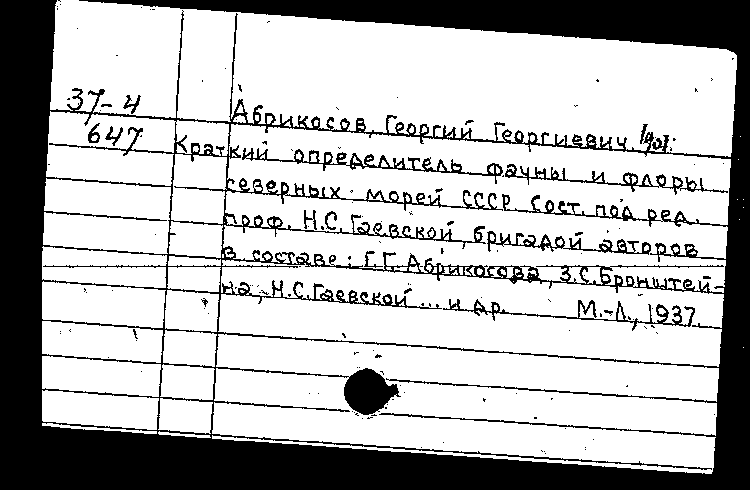 37-4
Абрикосов, Георгий Георгиевич. 1901.
647
Краткий определитель фауны и флоры
северных морей СССР. Сост. под ред.
проф. Н.С. Гаевской, бригадой авторов
в составе: Г.Г. Абрикосова, З.С. Бронштей-
на, Н.С. Гаевской ... и др. М.-Л., 1937.